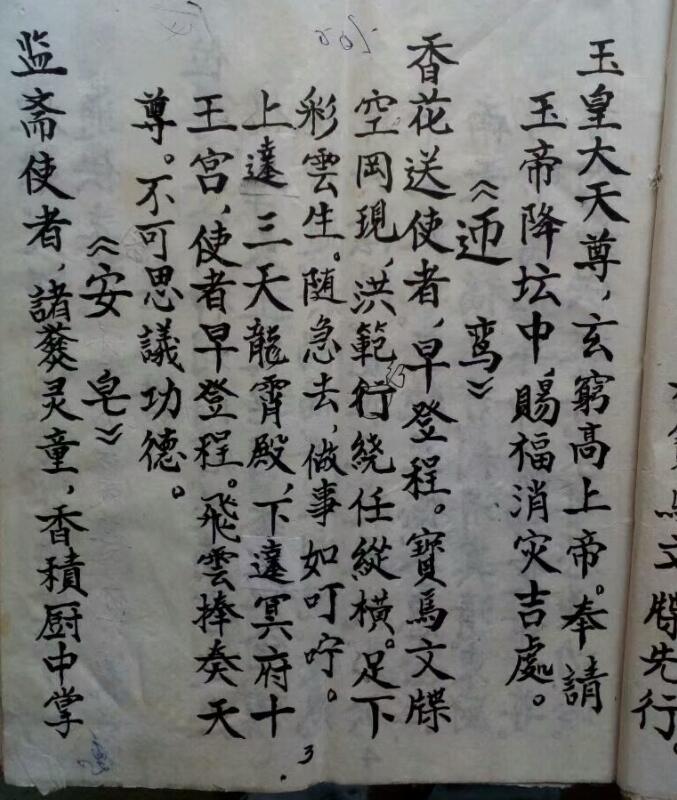 玉皇大天尊，玄窮高上帝。奉請
玉帝降坛中，賜福消灾吉處。
《迊 鸾》
香花送使者，早登程。寶馬文牒
空罔現，洪範行绕任縱横。足下
彩雲生。随急去，做事如叮咛。
上達三天龍霄殿，下達冥府十
王宫，使者早登程。飛雲捧奏天
尊。不可思議功德。
《安 皂》
监斋使者，諸灵童，香積厨中掌
3
文牒先行。